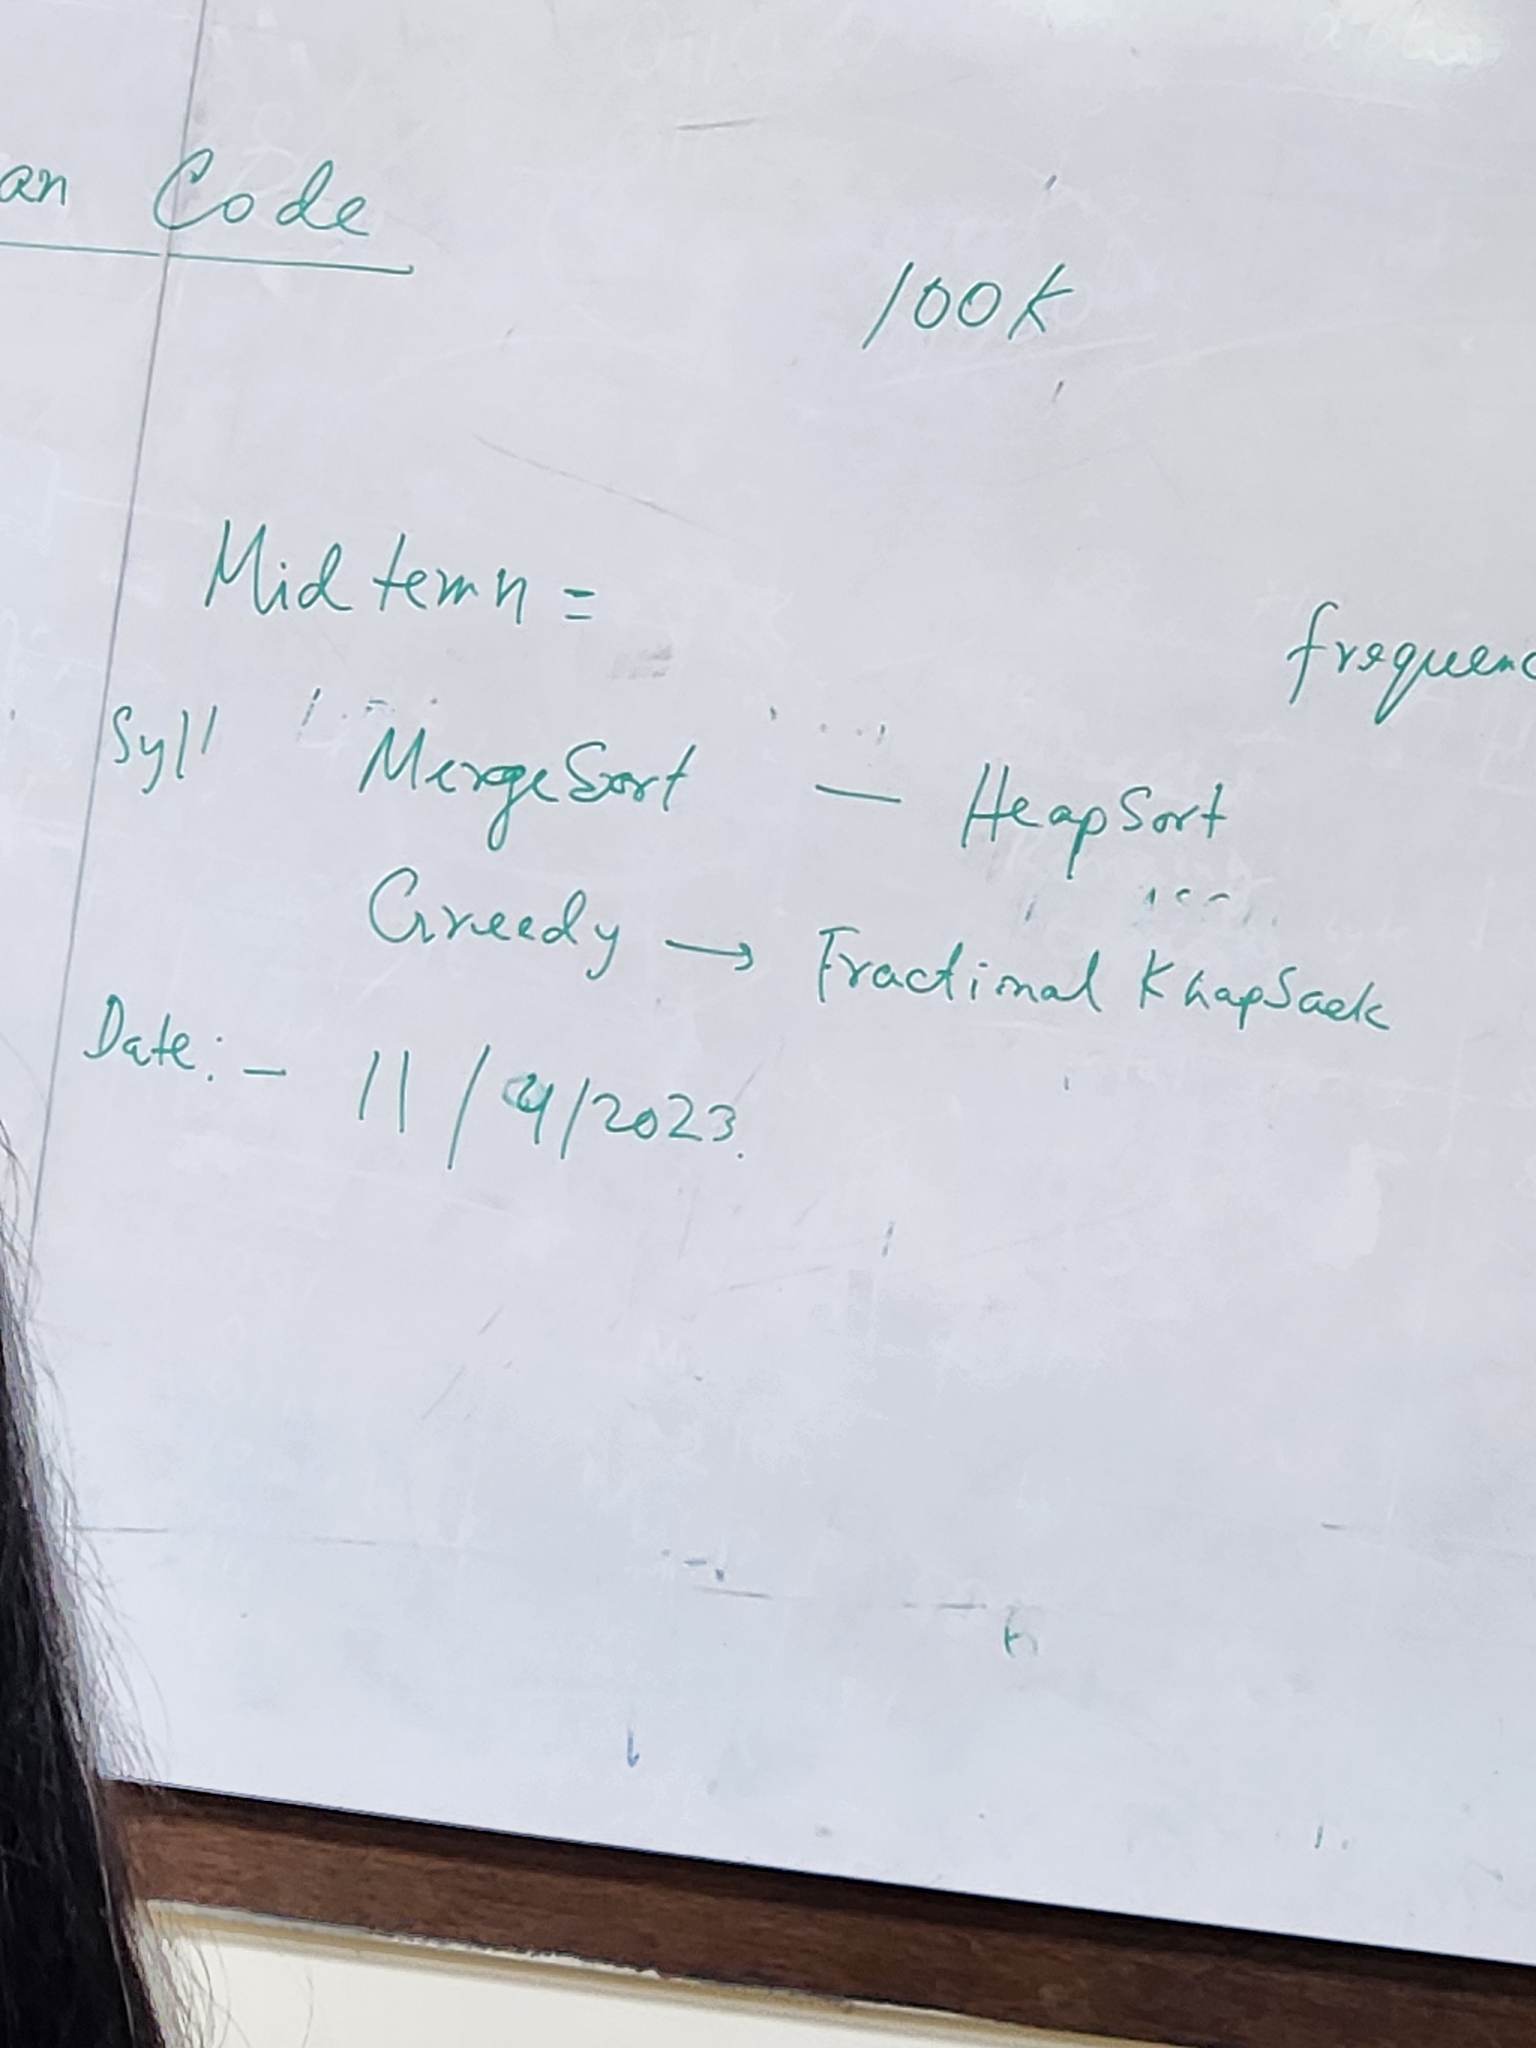 an Code
100K
Midterm =
frequenc
Syll MergeSort — HeapSort
Greedy → Fractional KnapSack
Date:- 11/4/2023.